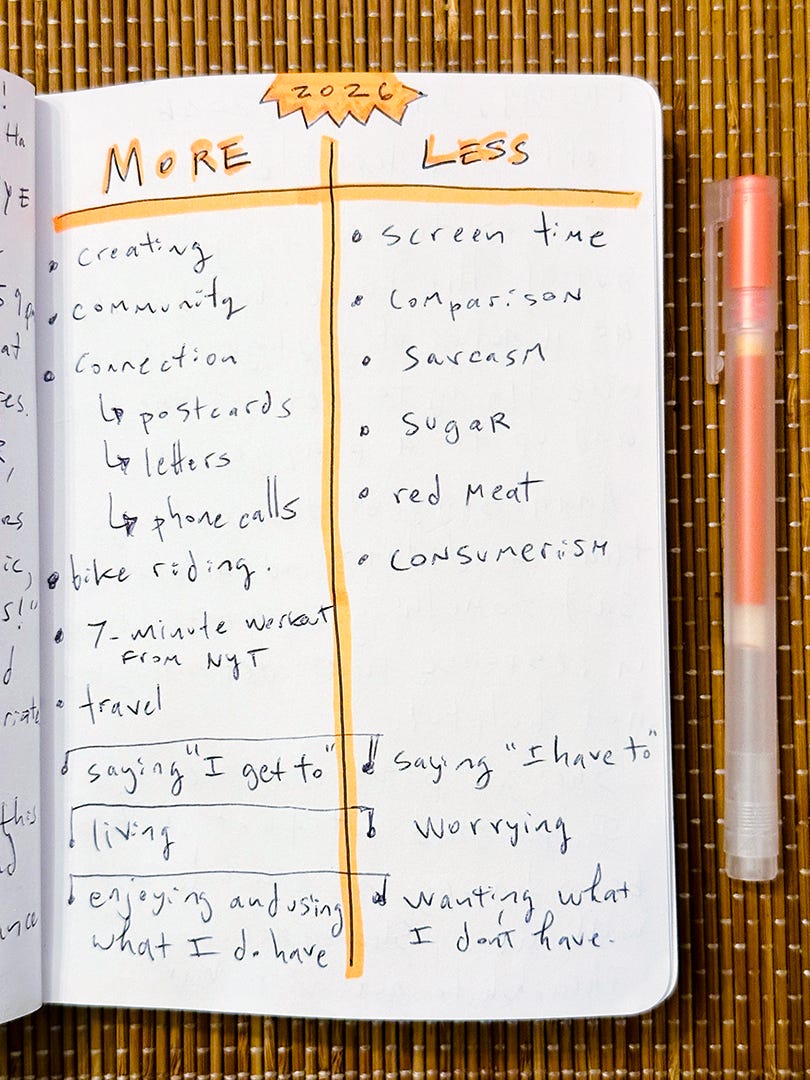 !
Ha
YE
at
es.
ic,
s!"
d
riate
this
2026
MORE
creating
community
connection
↳ postcards
↳ letters
↳ phone calls
bike riding.
7-minute workout
FROM NYT
travel
saying "I get to"
living
enjoying and using
what I do have
LESS
screen time
comparison
sarcasm
sugar
red meat
consumerism
saying "I have to"
worrying
wanting what
I don't have.